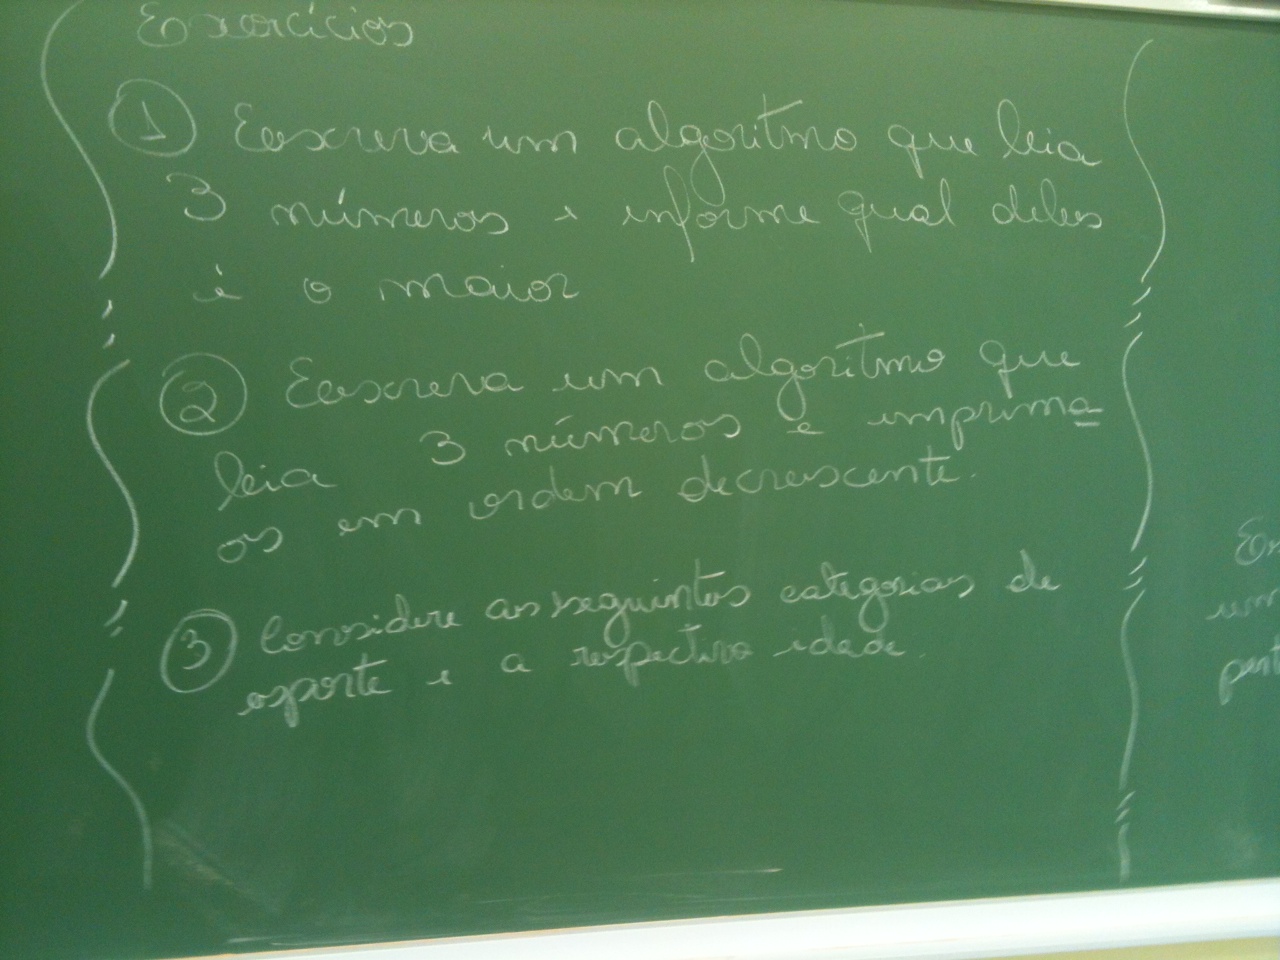 Exercícios
① Escreva um algoritmo que leia
3 números e informe qual deles
é o maior
② Escreva um algoritmo que
leia 3 números e imprima
os em ordem decrescente.
③ Considere as seguintes categorias de
esporte e a respectiva idade.
um